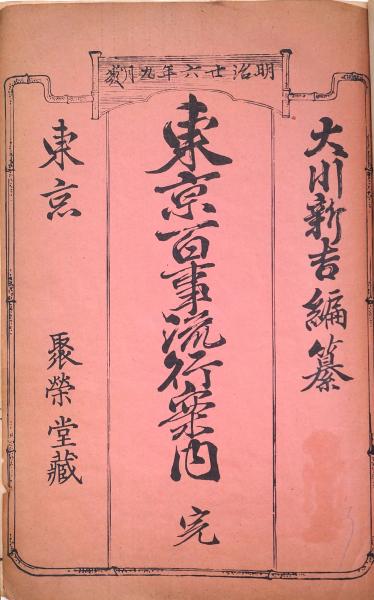 明治廿六年九月出版
大川新吉編纂
東京百事流行案内 完
東京 聚榮堂藏